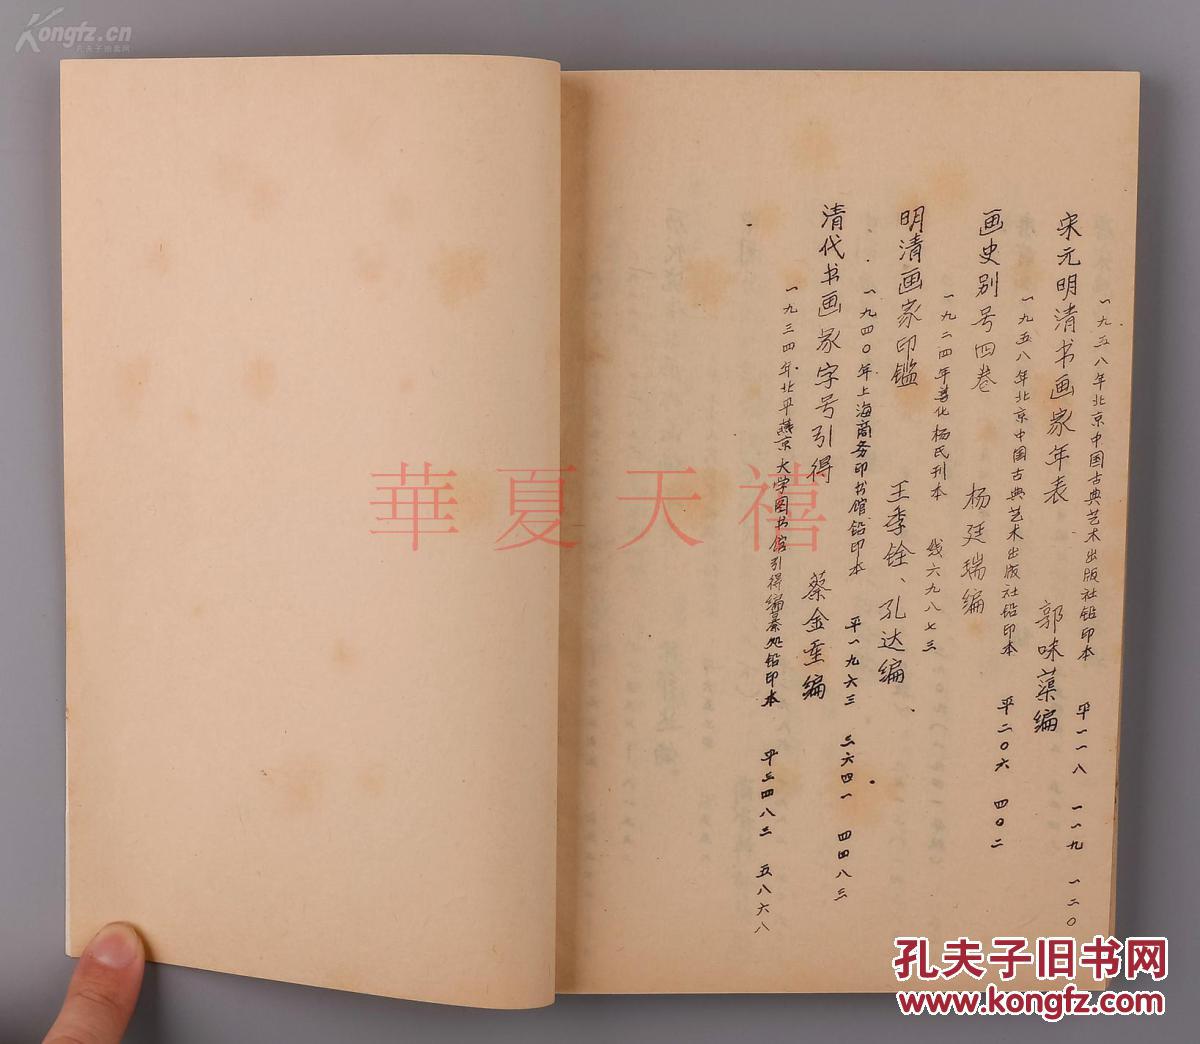 Kongfz.cn
孔夫子旧书网
一九五八年北京中国古典艺术出版社铅印本 平一一八 一一九 一二〇
宋元明清书画家年表 郭味蕖编
一九五八年北京中国古典艺术出版社铅印本 平二〇六 四〇二
画史别号四卷 杨廷瑞编
一九二四年遵化杨氏刊本 线六九八七三
明清画家印鑑 王季铨、孔达编
一九四〇年上海商务印书馆铅印本 平一九六三 三六四一 四四八三
清代书画家字号引得 蔡金重编
一九三四年北平燕京大学图书馆引得编纂处铅印本 平三四八三 五八六八
華夏天禧
孔夫子旧书网
www.kongfz.com